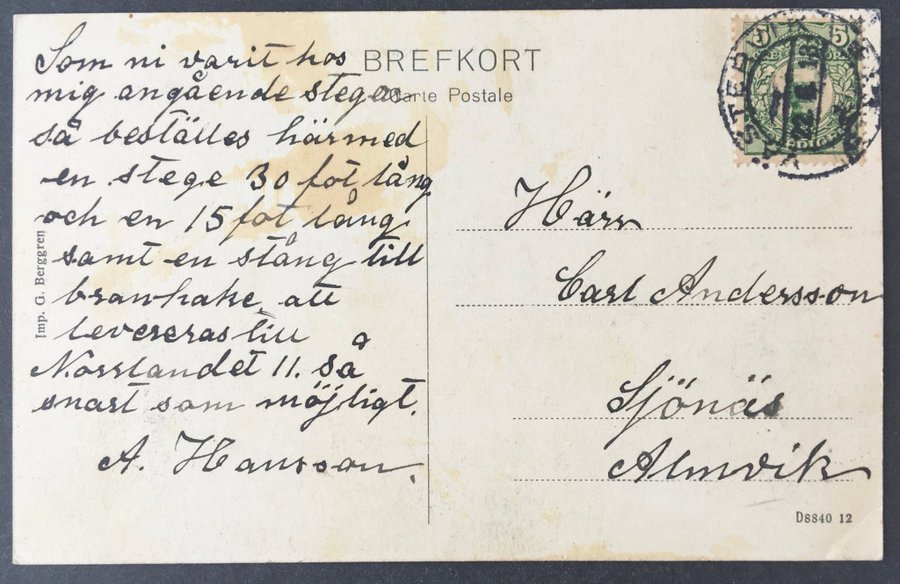 Som ni varit hos
mig angående stegen
så beställes härmed
en stege 30 fot lång
och en 15 fot lång
samt en stång till
branhake att
levereras till
Norrlandet 11. så
snart som möjligt.
A. Hansson.
BREFKORT
Carte Postale
Härr
Carl Andersson
Sjönäs
Almvik
Imp. G. Berggren
D8840 12
5